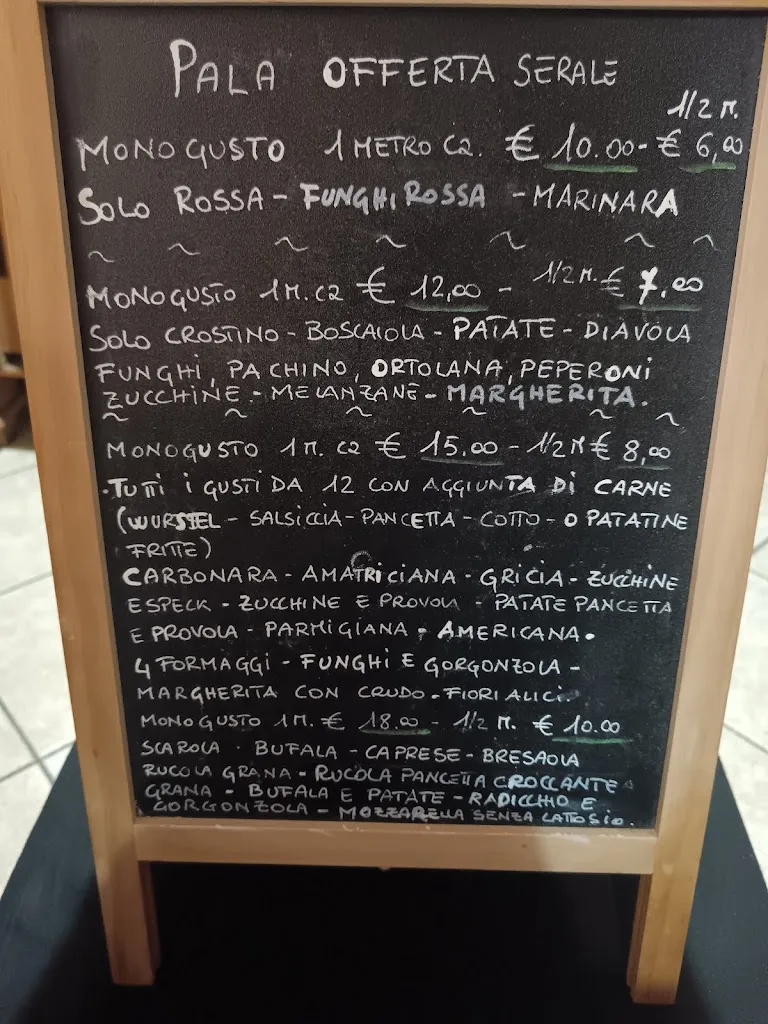 PALA OFFERTA SERALE
1/2 M.
MONOGUSTO 1 METRO CA. € 10.00 - € 6,00
SOLO ROSSA - FUNGHI ROSSA - MARINARA
~ ~ ~ ~ ~ ~ ~
MONOGUSTO 1 M. CA € 12,00 - 1/2 M. € 7,00
SOLO CROSTINO - BOSCAIOLA - PATATE - DIAVOLA
FUNGHI, PACHINO, ORTOLANA, PEPERONI
ZUCCHINE - MELANZANE - MARGHERITA.
~ ~ ~ ~ ~ ~
MONOGUSTO 1 M. CA € 15.00 - 1/2 M € 8,00
. TUTTI I GUSTI DA 12 CON AGGIUNTA DI CARNE
(WURSTEL - SALSICCIA - PANCETTA - COTTO - O PATATINE
FRITTE)
CARBONARA - AMATRICIANA - GRICIA - ZUCCHINE
E SPECK - ZUCCHINE E PROVOLA - PATATE PANCETTA
E PROVOLA - PARMIGIANA - AMERICANA.
4 FORMAGGI - FUNGHI E GORGONZOLA -
MARGHERITA CON CRUDO - FIORI ALICI.
MONOGUSTO 1 M. € 18.00 - 1/2 M. € 10.00
SCAROLA . BUFALA - CAPRESE - BRESAOLA
RUCOLA GRANA - RUCOLA PANCETTA CROCCANTE
GRANA - BUFALA E PATATE - RADICCHIO E
GORGONZOLA - MOZZARELLA SENZA LATTOSIO.